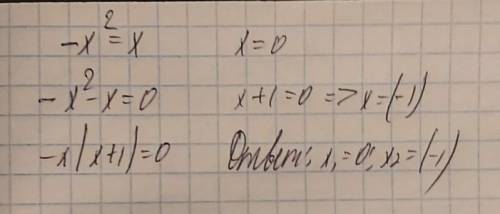 -x² = x
-x² - x = 0
-x(x+1) = 0
x = 0
x+1=0 => x=(-1)
Ответ: x₁=0; x₂=(-1)